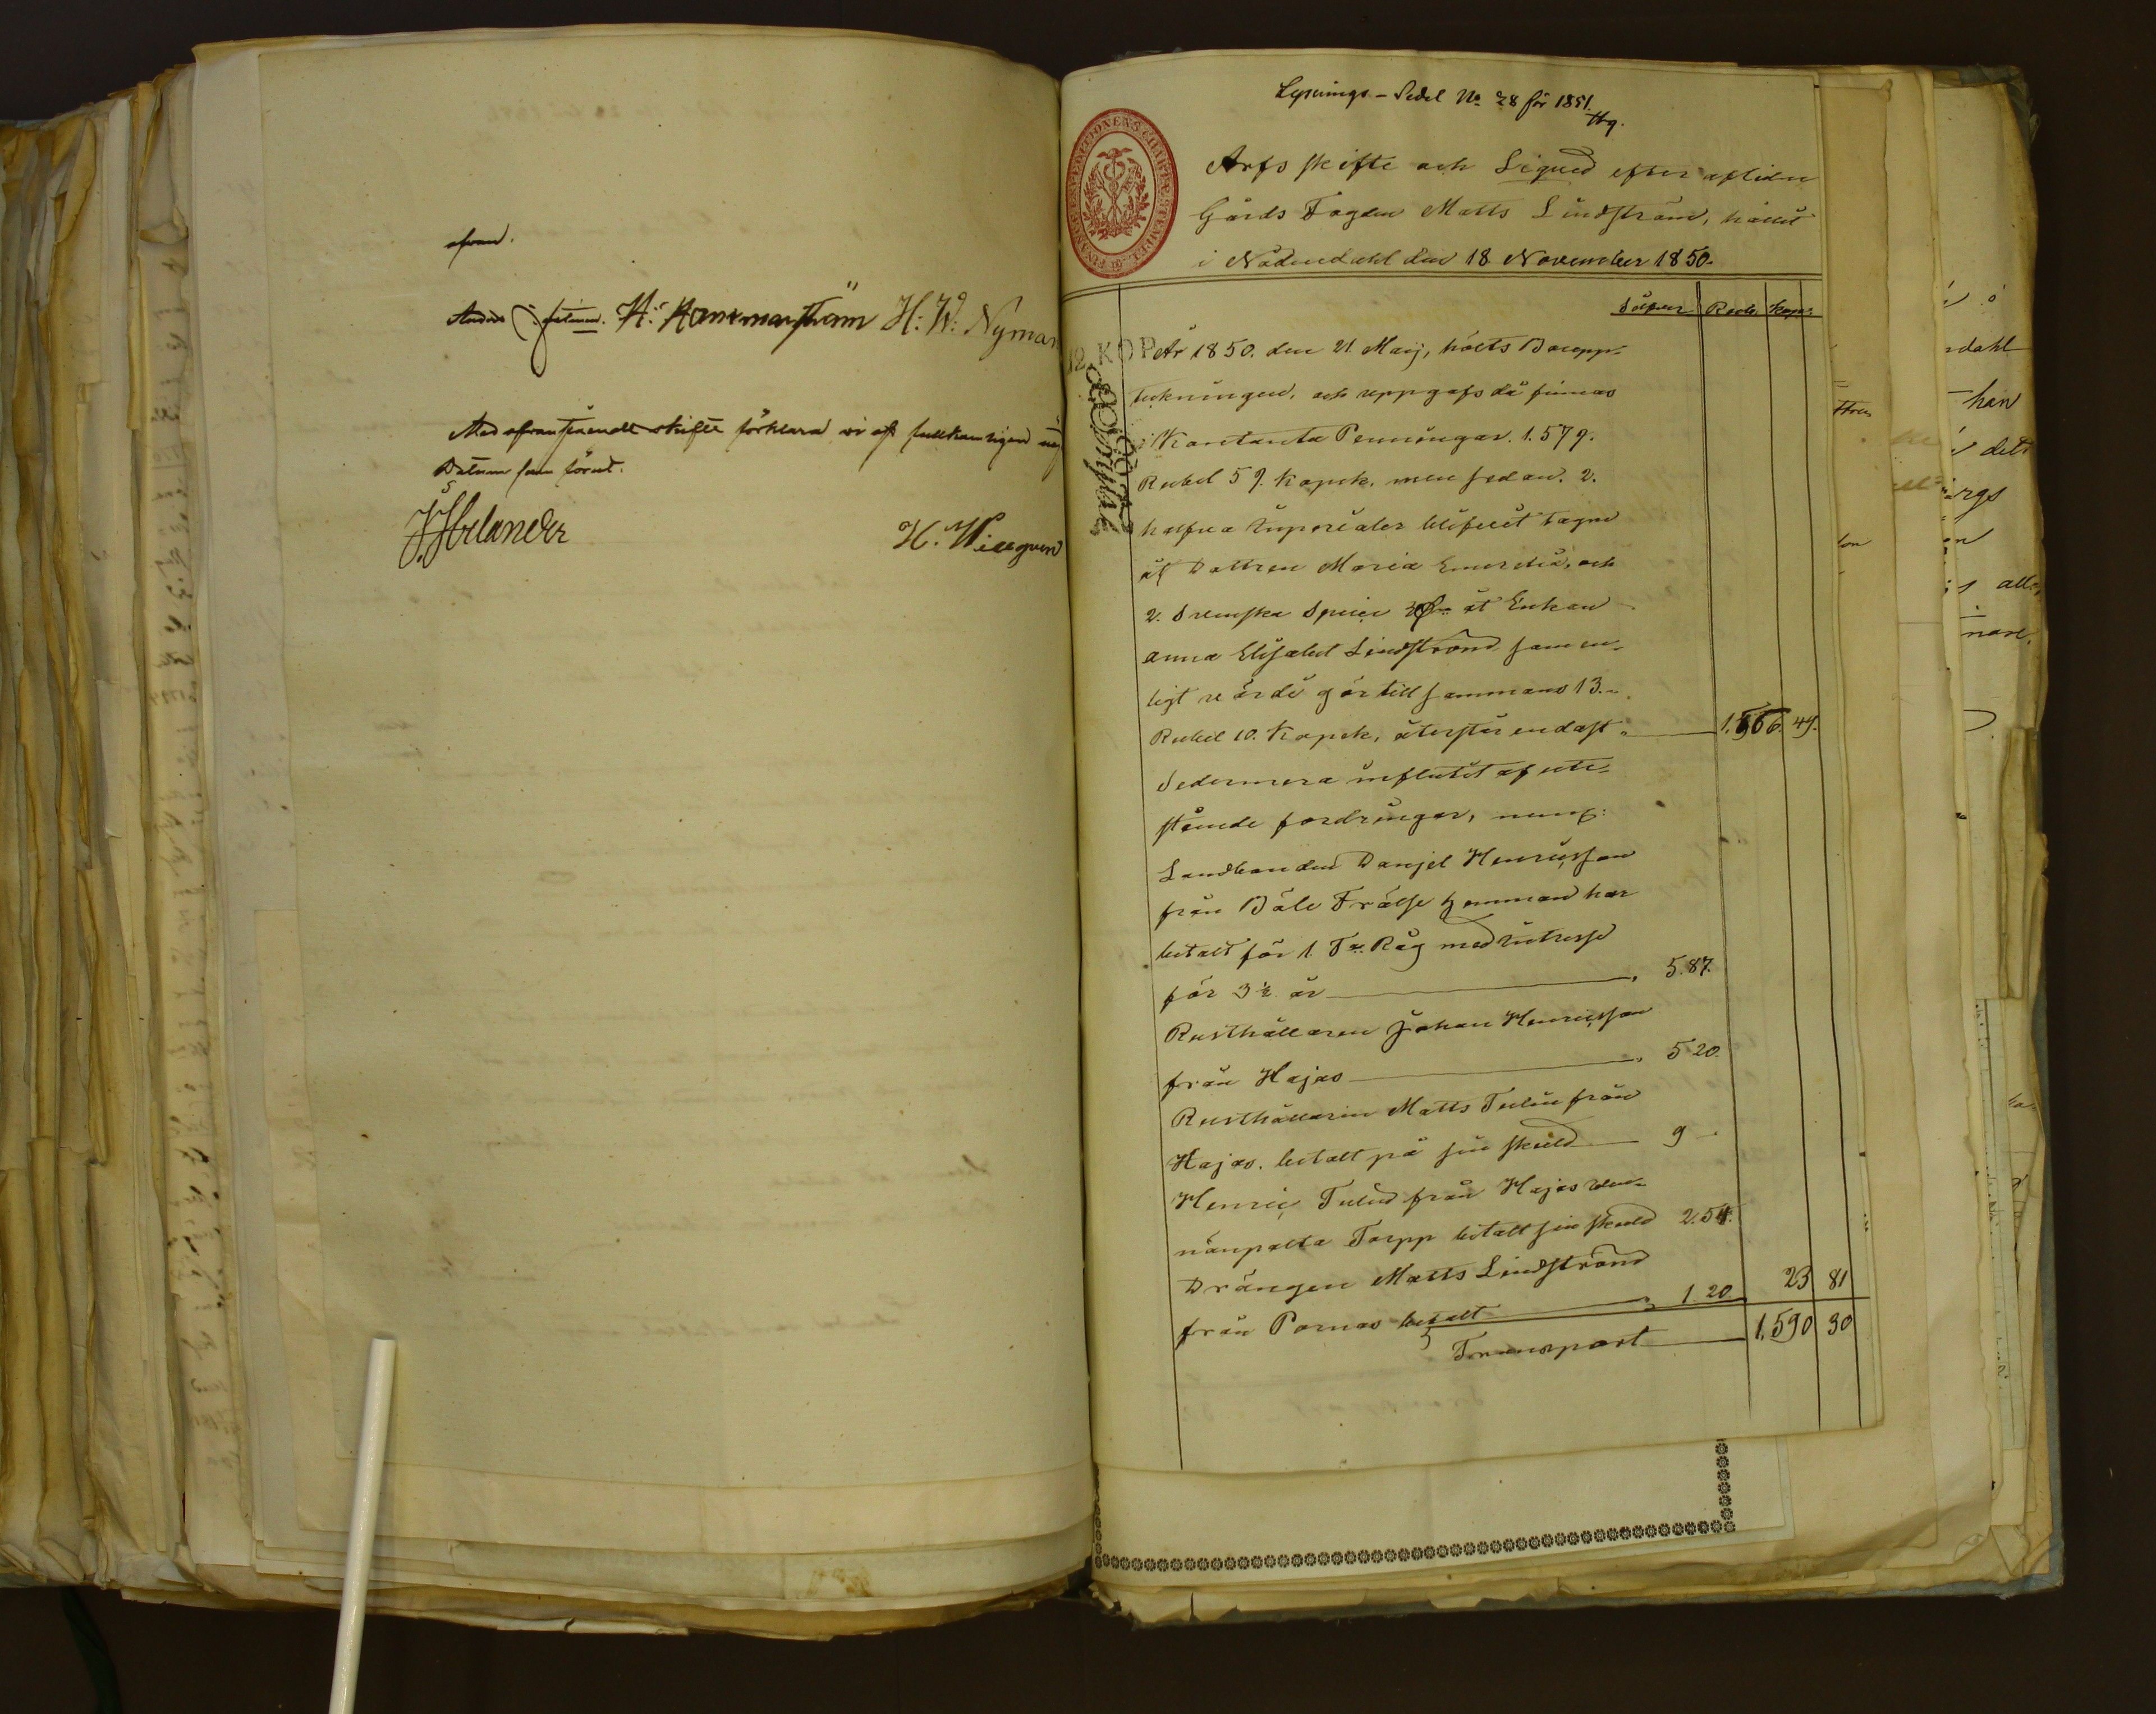 ofvan.
H: Hammarström H: W: Nyman
Med ofvanstående skifte förklara vi oss fullkomligen
Datum som förut.
J. J. Helander
Lysnings-Sedel No 28 för 1851.
Arfs skifte och Liqvid efter aflidne
Gårds Fogden Matts Lindström, hållit
i Nådendahl den 18 November 1850.
Silfver Rub. Kop:
12. KOP.
År 1850. den 21 Maij, hölts Boupp-
teckningen, och uppgafs då finnas
i Kontanta Penningar. 1.579.
Rubel 59. Kopek. men sedan. 2.
halfva imperialer blifvit tagne
åt Dottren Maria Emerentia, och
2. Svenska Specier åt Enkan
Anna Elisabet Lindström som en-
ligt värde gör tillsammans 13.-
Rubel 10. Kopek, återstår endast 1.566. 49.
Sedermera influtit af ute-
stående fordringar, neml:
Landbonden Danjel Henricsson
från Båle Frälse hemman har
betalt för 1. Tna Råg med intresse
för 3½ år 5.87.
Rusthållaren Johan Henricsson
från Hajas 5 20.
Rusthållarin Matts Tulin från
Hajas. betalt på sin skuld 9 -
Henric Tulin från Hajas
Torpp betalt sin skuld 2.54.
Drängen Matts Lindström
från Pornas betalt 1.20 23 81
Transport 1,590 30